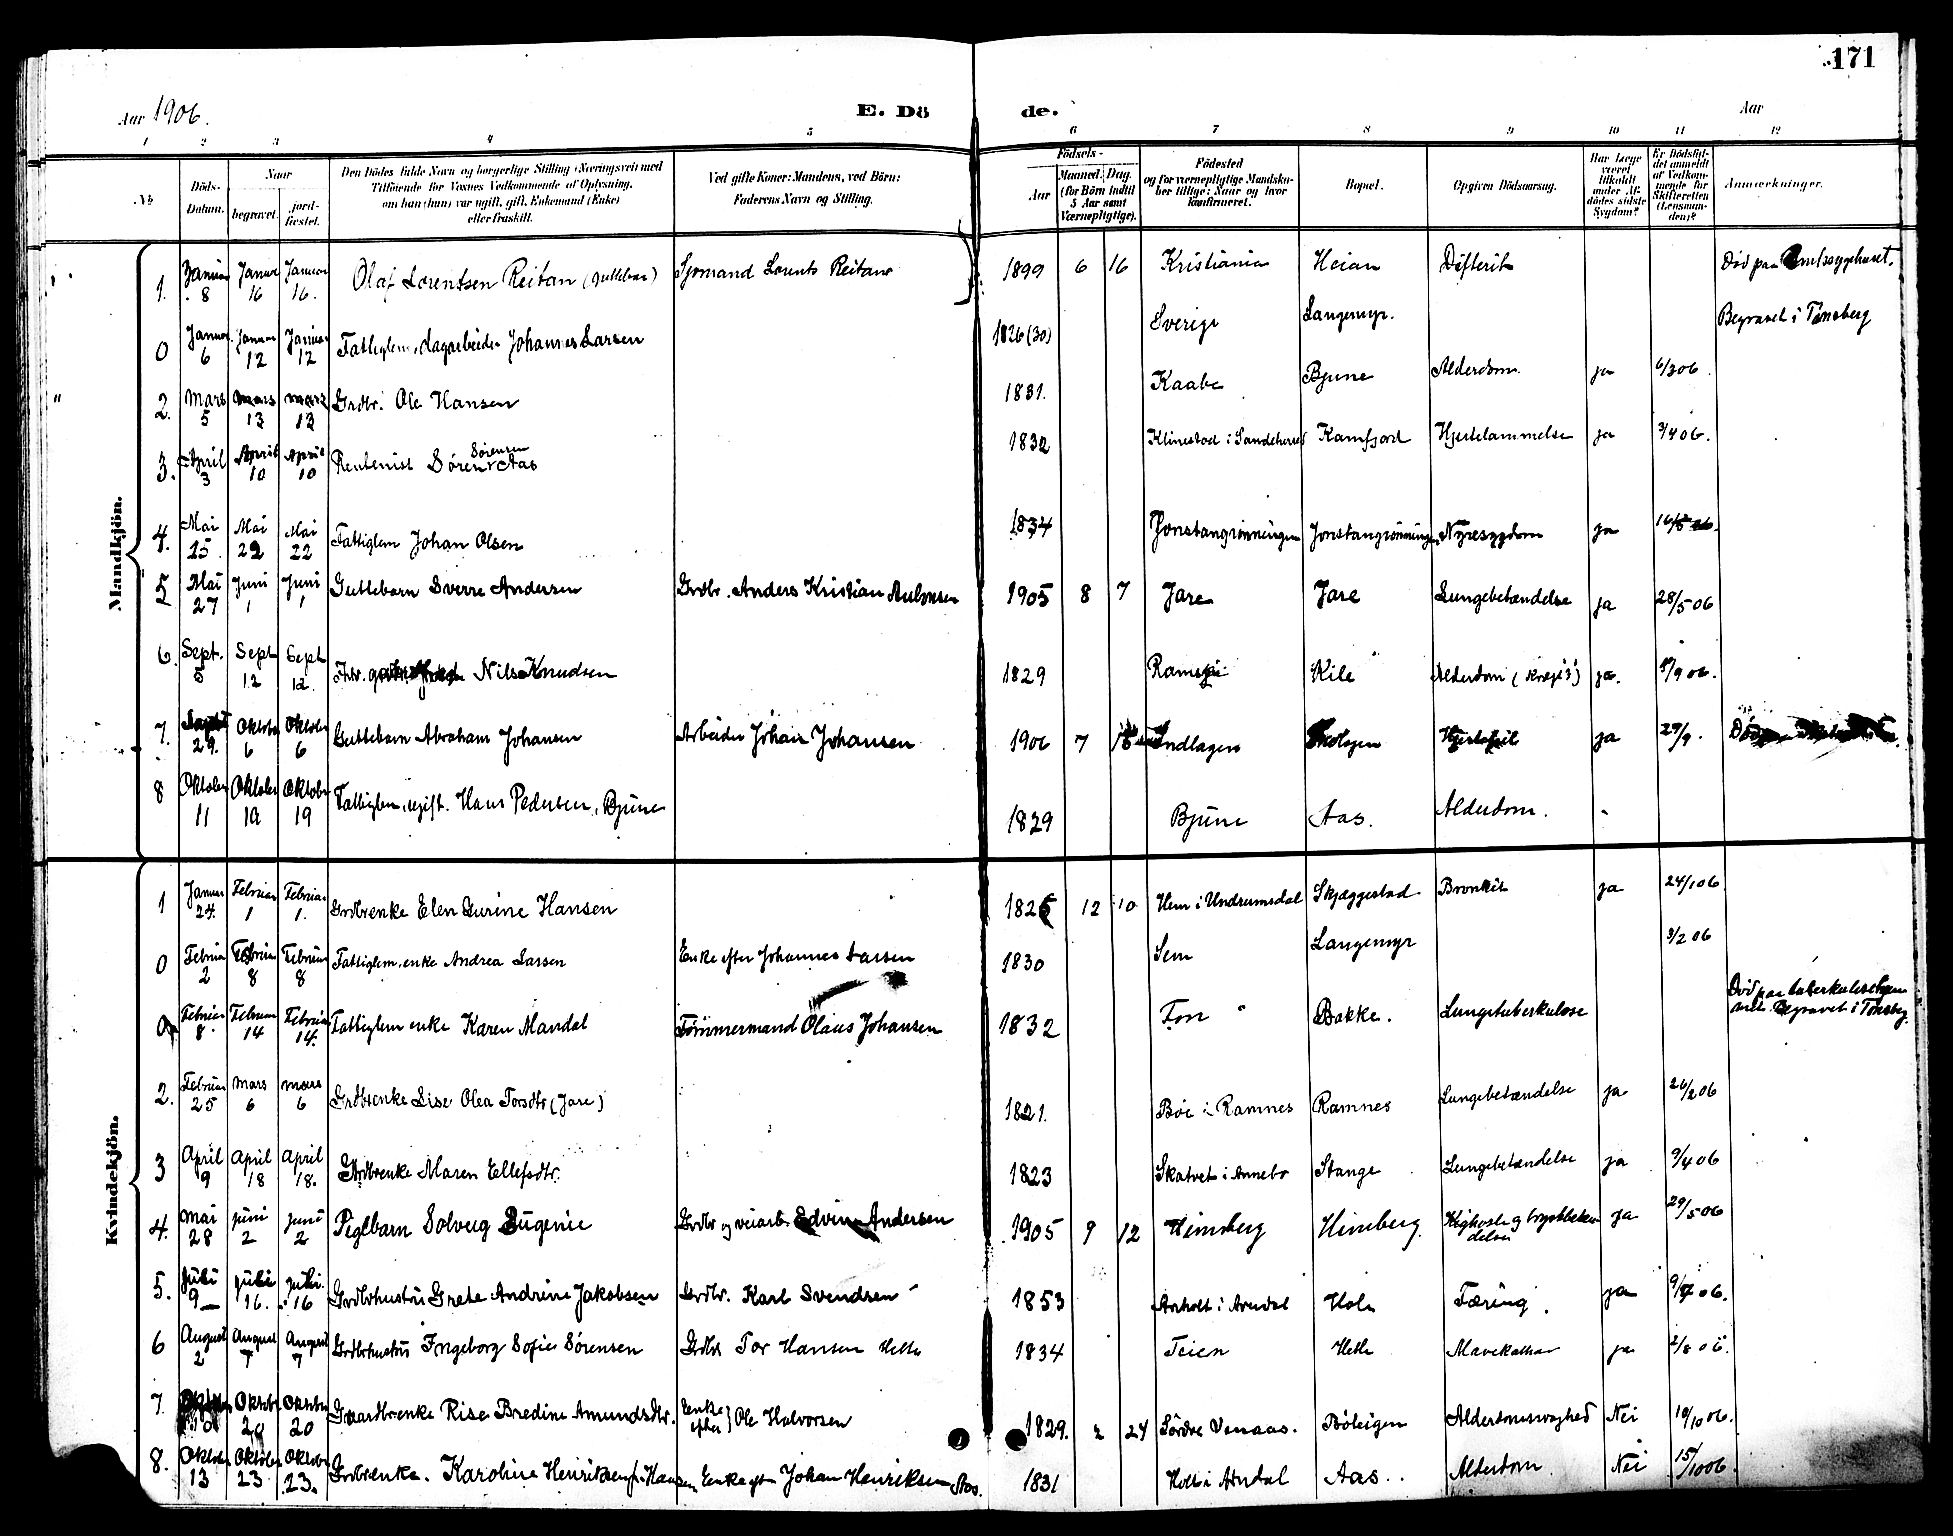 171
Aar 1906.
E. Dö de.
Aar
1 2 3 4 5 6 7 8 9 10 11 12
No
Döds-Datum.
Naar
begravet.
jord-fæstet.
Den Dödes fulde Navn og borgerlige Stilling (Næringsvei) med
Tilföiende for Voxnes Vedkommende af Oplysning,
om han (hun) var ugift, gift, Enkemand (Enke)
eller fraskilt.
Ved gifte Koner: Mandens, ved Börn:
Faderens Navn og Stilling.
Födsels-
Aar
Maaned. Dag.
(for Börn indtil
5 Aar samt
Værnepligtige).
Födested
og for værnepligtige Mandskaber tillige: Naar og hvor
konfirmeret.
Bopæl.
Opgiven Dödsaarsag.
Har Læge
været
tilkaldt
under Afdödes sidste
Sygdom?
Er Dödsfaldet anmeldt
af Vedkommende for
Skifteretten
(Lensmanden)?
Anmærkninger.
Mandkjön.
1. Januar 8 Januar 16 Januar 16. Olaf Lorentsen Reitan Sjomand Lorents Reitan 1899 6 16 Kristiania Heian Difterit Död paa Amtssygehuset.
0 Januar 6 Januar 12 Januar 12 Fattiglem, dagarbeider Johannes Larsen 1826 (30) Sverige Langemyr. Begravet i Tønsberg
2. Mars 5 Mars 13 Mars 13 Grdbr. Ole Hansen 1831. Kaabe Bjune Alderdom. ja 6/3 06.
3. April 3 April 10 April 10 Rentenist Søren Sørensen Aas 1832 Klinestad i Sandeherred Kamfjord Hjertelammelse ja 3/4 06.
4. Mai 15. Mai 22 Mai 22 Fattiglem Johan Olsen 1834 Jonstangrønningen Jonstangrønningen Nyresygdom ja 16/5 06.
5 Mai 27 Juni 1 Juni 1 Guttebarn Sverre Andersen Grdbr. Anders Kristian 1905 8 7 Jare Jare Lungebetændelse ja 28/5 06
6. Sept. 5 Sept 12 Sept 12. Nils Knudsen 1829 Kile Alderdom ja. /9 06.
7. 29. Oktober 6 Oktober 6 Guttebarn Abraham Johansen Arbeider Johan Johansen 1906 7 Indlagen Hjertefeil ja 29/9.
8 Oktober 11 Oktober 19 Oktober 19 Fattiglem, ugift. Hans Pedersen, Bjune 1829 Bjune Aas. Alderdom. -
Kvindekjön.
1 Januar 24. Februar 1 Februar 1. Grdbrenke Elen Gurine Hansen 1825 12 10 Hem i Undrumsdal Skjæggestad Bronkit ja 24/1 06
0 Februar 2 Februar 8 Februar 8 Fattiglem, enke Andrea Larsen Enke efter Johannes Larsen 1830 Sem Langemyr 3/2 06
0 Februar 8. Februar 14 Februar 14. Fattiglem enke Karen Mandal Tömmermand Olaus Johansen 1832 Fon Bakke. Lungetuberkulose Död paa tuberkulosehjem Begravet i Tønsberg.
2. Februar 25 Mars 6 Mars 6 Grdbrenke Lise Olea Torsdtr (Jare) 1821. Böe i Ramnes Ramnes Lungebetændelse ja 26/2 06
3 April 9 April 18 April 18. Grdbrenke Maren Ellefsdtr. 1823 Skatvet i Annebo Stange Lungebetændelse ja 9/4 06
4. Mai 28 Juni 2 Juni 2 Pigebarn Solveig Eugenie Grdbr og veiarb. Edvin Andersen 1905 9 12 Himberg Himberg. Kighoste og brystbetændelse ja 29/5 06
5. Juli 9 Juli 16. Juli. 16 Grdbrhustru Grete Andrine Jakobsen Grdbr. Karl Svendsen 1853 Arholt i Arndal Hole Tæring. ja 9/7 06.
6 August 2 August 7 August 7 Grdbrhustru Ingeborg Sofie Sørensen Grdbr Tor Hansen Helle 1834 Teien Helle Mavekathar ja 2/8 06.
7. Oktober 10 Oktober 20 Oktober 20 Gaardbrenke Rise Bredine Amundsdtr. Enke efter } Ole Halvorsen 1829. 2 24 Söndre Vennaas. Böleigen Alderdomssvaghed Nei 10/10 06.
8. Oktober 13 Oktober 23 Oktober 23. Grdbrenke. Karoline Henriksen f. Hansen Enke eft Johan Henriksen Aas. 1831 Holt i Arndal Aas. Alderdom Nei 15/10 06.